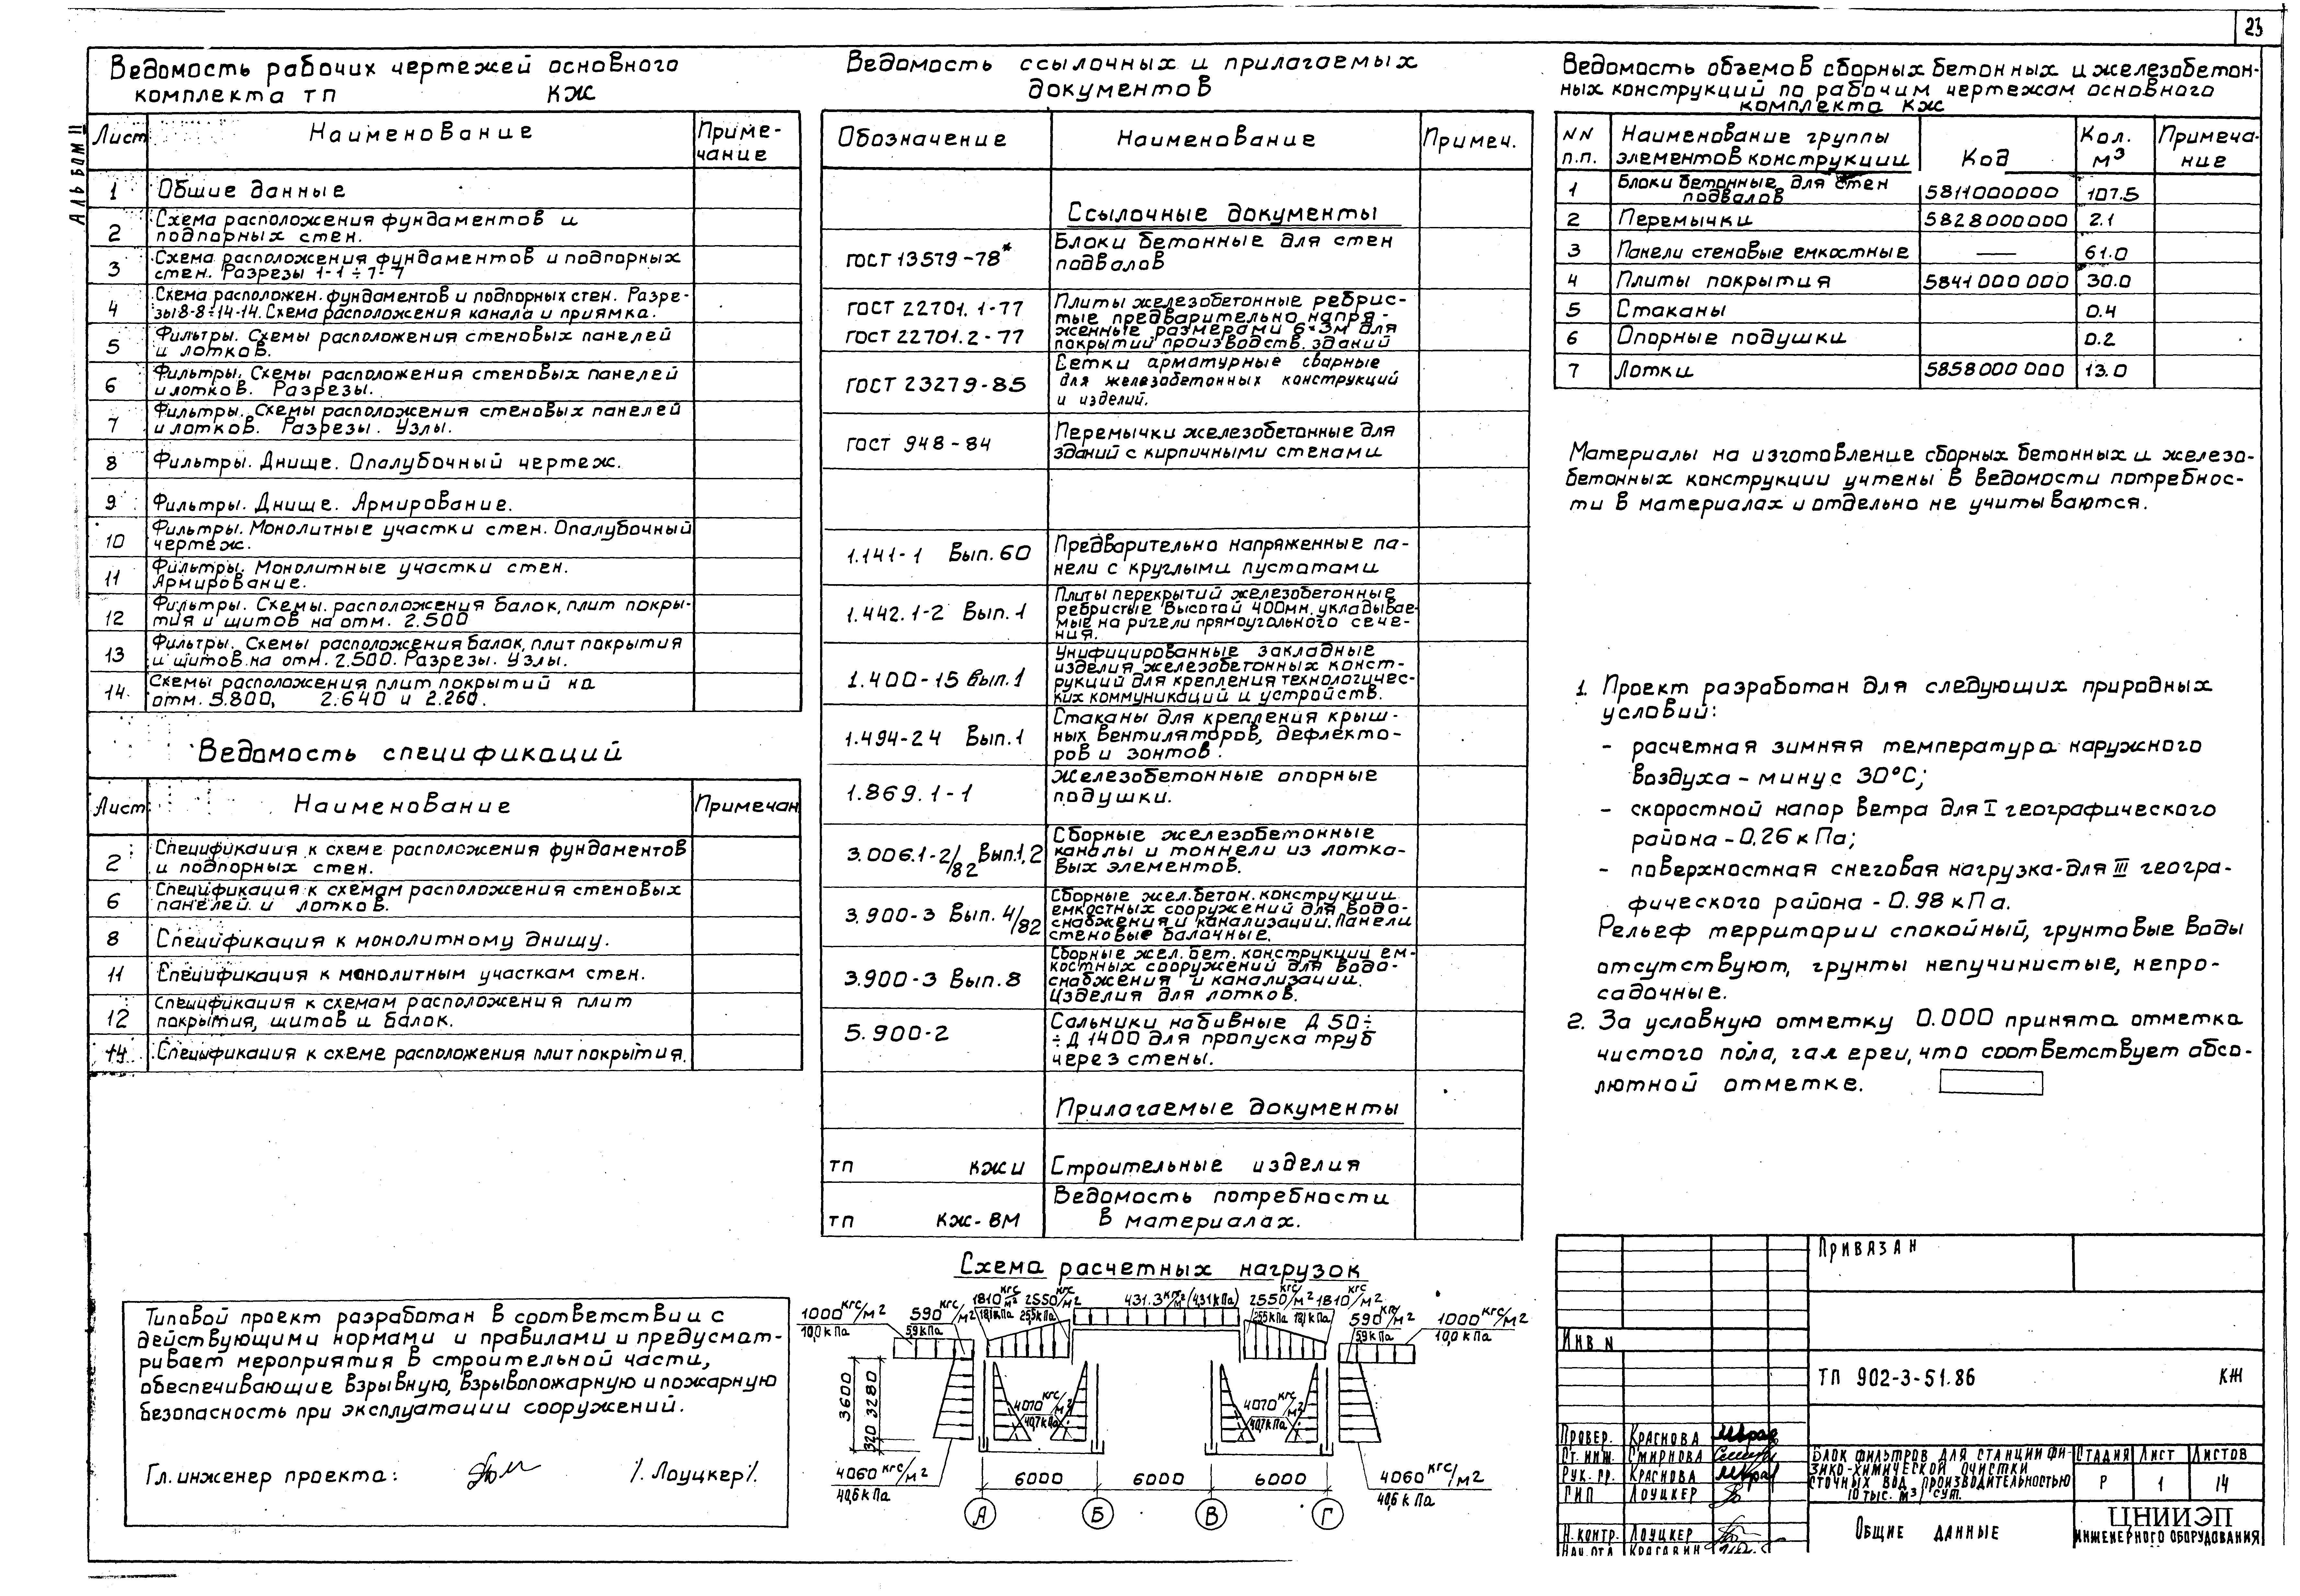 23
Альбом II
Ведомость рабочих чертежей основного
комплекта ТП КЖ
Лист Наименование Приме-
чание
1 Общие данные
2 Схема расположения фундаментов и
подпорных стен.
3 Схема расположения фундаментов и подпорных
стен. Разрезы 1-1÷7-7
4 Схема расположен. фундаментов и подпорных стен. Разре-
зы 8-8÷14-14. Схема расположения канала и приямка.
5 Фильтры. Схемы расположения стеновых панелей
и лотков.
6 Фильтры. Схемы расположения стеновых панелей
и лотков. Разрезы.
7 Фильтры. Схемы расположения стеновых панелей
и лотков. Разрезы. Узлы.
8 Фильтры. Днище. Опалубочный чертеж.
9 Фильтры. Днище. Армирование.
10 Фильтры. Монолитные участки стен. Опалубочный
чертеж.
11 Фильтры. Монолитные участки стен.
Армирование.
12 Фильтры. Схемы расположения балок, плит покры-
тия и щитов на отм. 2.500
13 Фильтры. Схемы расположения балок, плит покрытия
и щитов на отм. 2.500. Разрезы. Узлы.
14 Схемы расположения плит покрытий на
отм. 5.800, 2.640 и 2.260.
Ведомость спецификаций
Лист Наименование Примечан
2 Спецификация к схеме расположения фундаментов
и подпорных стен.
6 Спецификация к схемам расположения стеновых
панелей и лотков.
8 Спецификация к монолитному днищу.
11 Спецификация к монолитным участкам стен.
12 Спецификация к схемам расположения плит
покрытия, щитов и балок.
14 Спецификация к схеме расположения плит покрытия.
Типовой проект разработан в соответствии с
действующими нормами и правилами и предусмат-
ривает мероприятия в строительной части,
обеспечивающие взрывную, взрывопожарную и пожарную
безопасность при эксплуатации сооружений.
Гл. инженер проекта: /. Лоуцкер/.
Ведомость ссылочных и прилагаемых
документов
Обозначение Наименование Примеч.
Ссылочные документы
ГОСТ 13579-78* Блоки бетонные для стен
подвалов
ГОСТ 22701.1-77 Плиты железобетонные ребрис-
тые предварительно напря-
ГОСТ 22701.2-77 женные размерами 6×3м для
покрытий производств. зданий
ГОСТ 23279-85 Сетки арматурные сварные
для железобетонных конструкций
и изделий.
ГОСТ 948-84 Перемычки железобетонные для
зданий с кирпичными стенами
1.141-1 Вып. 60 Предварительно напряженные па-
нели с круглыми пустотами
1.442.1-2 Вып. 1 Плиты перекрытий железобетонные
ребристые высотой 400мм, укладывае-
мые на ригели прямоугольного сече-
ния.
1.400-15 Вып. 1 Унифицированные закладные
изделия железобетонных конст-
рукций для крепления технологичес-
ких коммуникаций и устройств.
1.494-24 Вып. 1 Стаканы для крепления крыш-
ных вентиляторов, дефлекто-
ров и зонтов.
1.869.1-1 Железобетонные опорные
подушки.
3.006.1-2/82 Вып.1,2 Сборные железобетонные
каналы и тоннели из лотко-
вых элементов.
3.900-3 Вып. 4/82 Сборные жел.бетон. конструкции
емкостных сооружений для водо-
снабжения и канализации. Панели
стеновые балочные.
3.900-3 Вып. 8 Сборные жел. бет. конструкции ем-
костных сооружений для водо-
снабжения и канализации.
Изделия для лотков.
5.900-2 Сальники набивные Д 50÷
÷Д 1400 для пропуска труб
через стены.
Прилагаемые документы
ТП КЖИ Строительные изделия
ТП КЖ-ВМ Ведомость потребности
в материалах.
Схема расчетных нагрузок
1000 кгс/м2 590 кгс/м2 1810 кгс/м2 2550 кгс/м2 431.3 кгс/м2 (4,31 кПа) 2550 кгс/м2 1810 кгс/м2 590 кгс/м2 1000 кгс/м2
10,0 кПа 5,9 кПа 18,1 кПа 25,5 кПа 25,5 кПа 18,1 кПа 5,9 кПа 10,0 кПа
3600 320 3280
4070 кгс/м2 4070 кгс/м2
40,7 кПа 40,7 кПа
4060 кгс/м2 6000 6000 6000 4060 кгс/м2
40,6 кПа 40,6 кПа
А Б В Г
Ведомость объемов сборных бетонных и железобетон-
ных конструкций по рабочим чертежам основного
комплекта КЖ
NN
п.п. Наименование группы
элементов конструкции Код Кол.
м3 Примеча-
ние
1 Блоки бетонные для стен
подвалов 5811000000 107.5
2 Перемычки 5828000000 2.1
3 Панели стеновые емкостные — 61.0
4 Плиты покрытия 5841000000 30.0
5 Стаканы 0.4
6 Опорные подушки 0.2
7 Лотки 5858000000 13.0
Материалы на изготовление сборных бетонных и железо-
бетонных конструкции учтены в ведомости потребнос-
ти в материалах и отдельно не учитываются.
1. Проект разработан для следующих природных
условий:
- расчетная зимняя температура наружного
воздуха - минус 30°С;
- скоростной напор ветра для I географического
района - 0.26 кПа;
- поверхностная снеговая нагрузка - для III геогра-
фического района - 0.98 кПа.
Рельеф территории спокойный, грунтовые воды
отсутствуют, грунты непучинистые, непро-
садочные.
2. За условную отметку 0.000 принята отметка
чистого пола, галереи, что соответствует абсо-
лютной отметке.
Привязан
Инв N
ТП 902-3-51.86 КЖ
Провер. Краснова
Ст. инж. Смирнова
Рук. гр. Краснова
ГИП Лоуцкер
Н. контр. Лоуцкер
Нач. отд.
Блок фильтров для станции фи-
зико-химической очистки
сточных вод производительностью
10 тыс. м3/сут.
Стадия Лист Листов
Р 1 14
Общие данные
ЦНИИЭП
инженерного оборудования